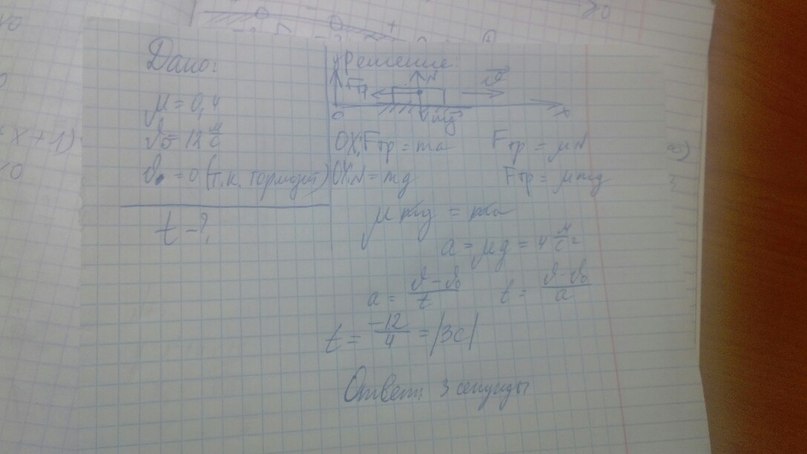 Дано:
μ = 0,4
v₀ = 12 м/с
v = 0 (т.к. тормозит)
t - ?
Решение
y
N
Fтр
v
mg
0
x
OX: Fтр = ma Fтр = μN
OY: N = mg Fтр = μmg
μmg = ma
a = μg = 4 м/с²
a = (v - v₀)/t t = (v - v₀)/a
t = -12/4 = |3c|
Ответ: 3 секунды